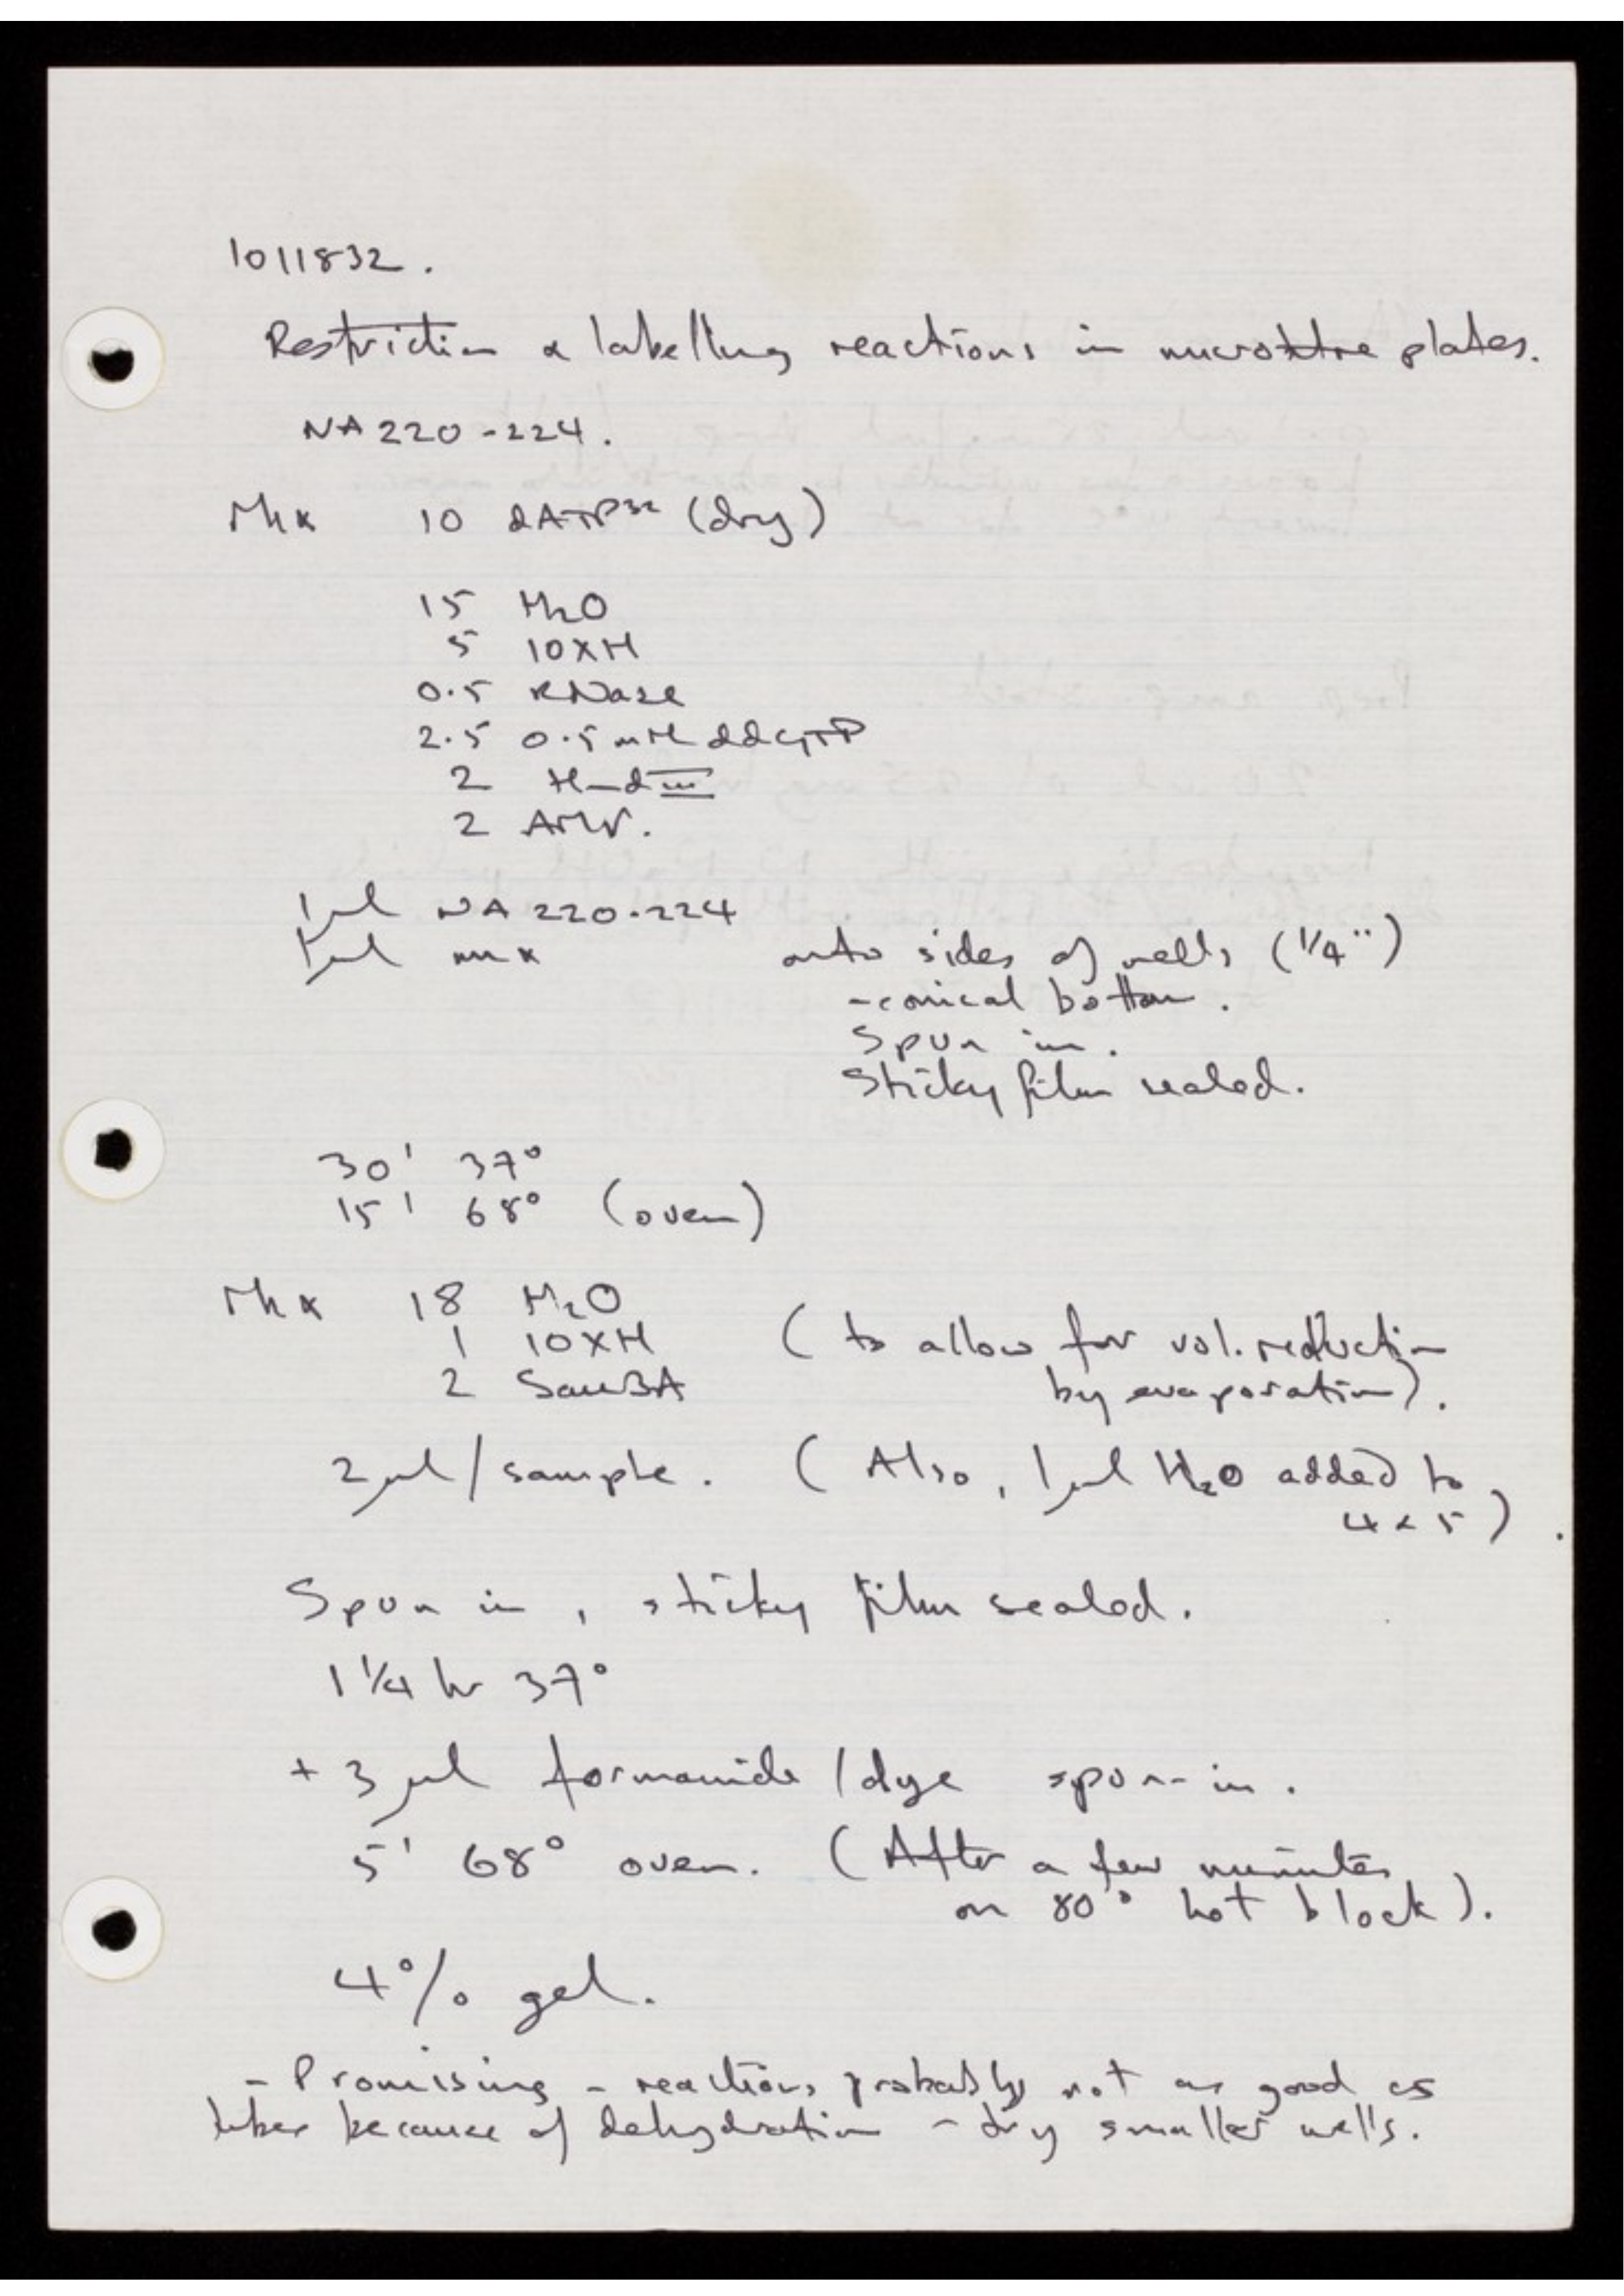 1011832.
Restriction & labelling reactions in microtitre plates.
NA 220-224.
Mix 10 dATP³² (dry)
15 H₂O
5 10XH
0.5 RNase
2.5 0.5 mM ddGTP
2 Hind III
2 AMV.
1 µl NA 220-224
1 µl mix onto sides of wells (1/4")
- conical bottom.
Spun in.
Sticky film sealed.
30' 37°
15' 68° (oven)
Mix 18 H₂O
1 10XH (to allow for vol. reduction
2 Sau3A by evaporation).
2 µl / sample. (Also, 1 µl H₂O added to
4 & 5).
Spun in, sticky film sealed.
1 1/4 hr 37°
+ 3 µl formamide / dye spun in.
5' 68° oven. (After a few minutes
on 80° hot block).
4% gel.
- Promising - reactions probably not as good as
tubes because of dehydration - try smaller wells.